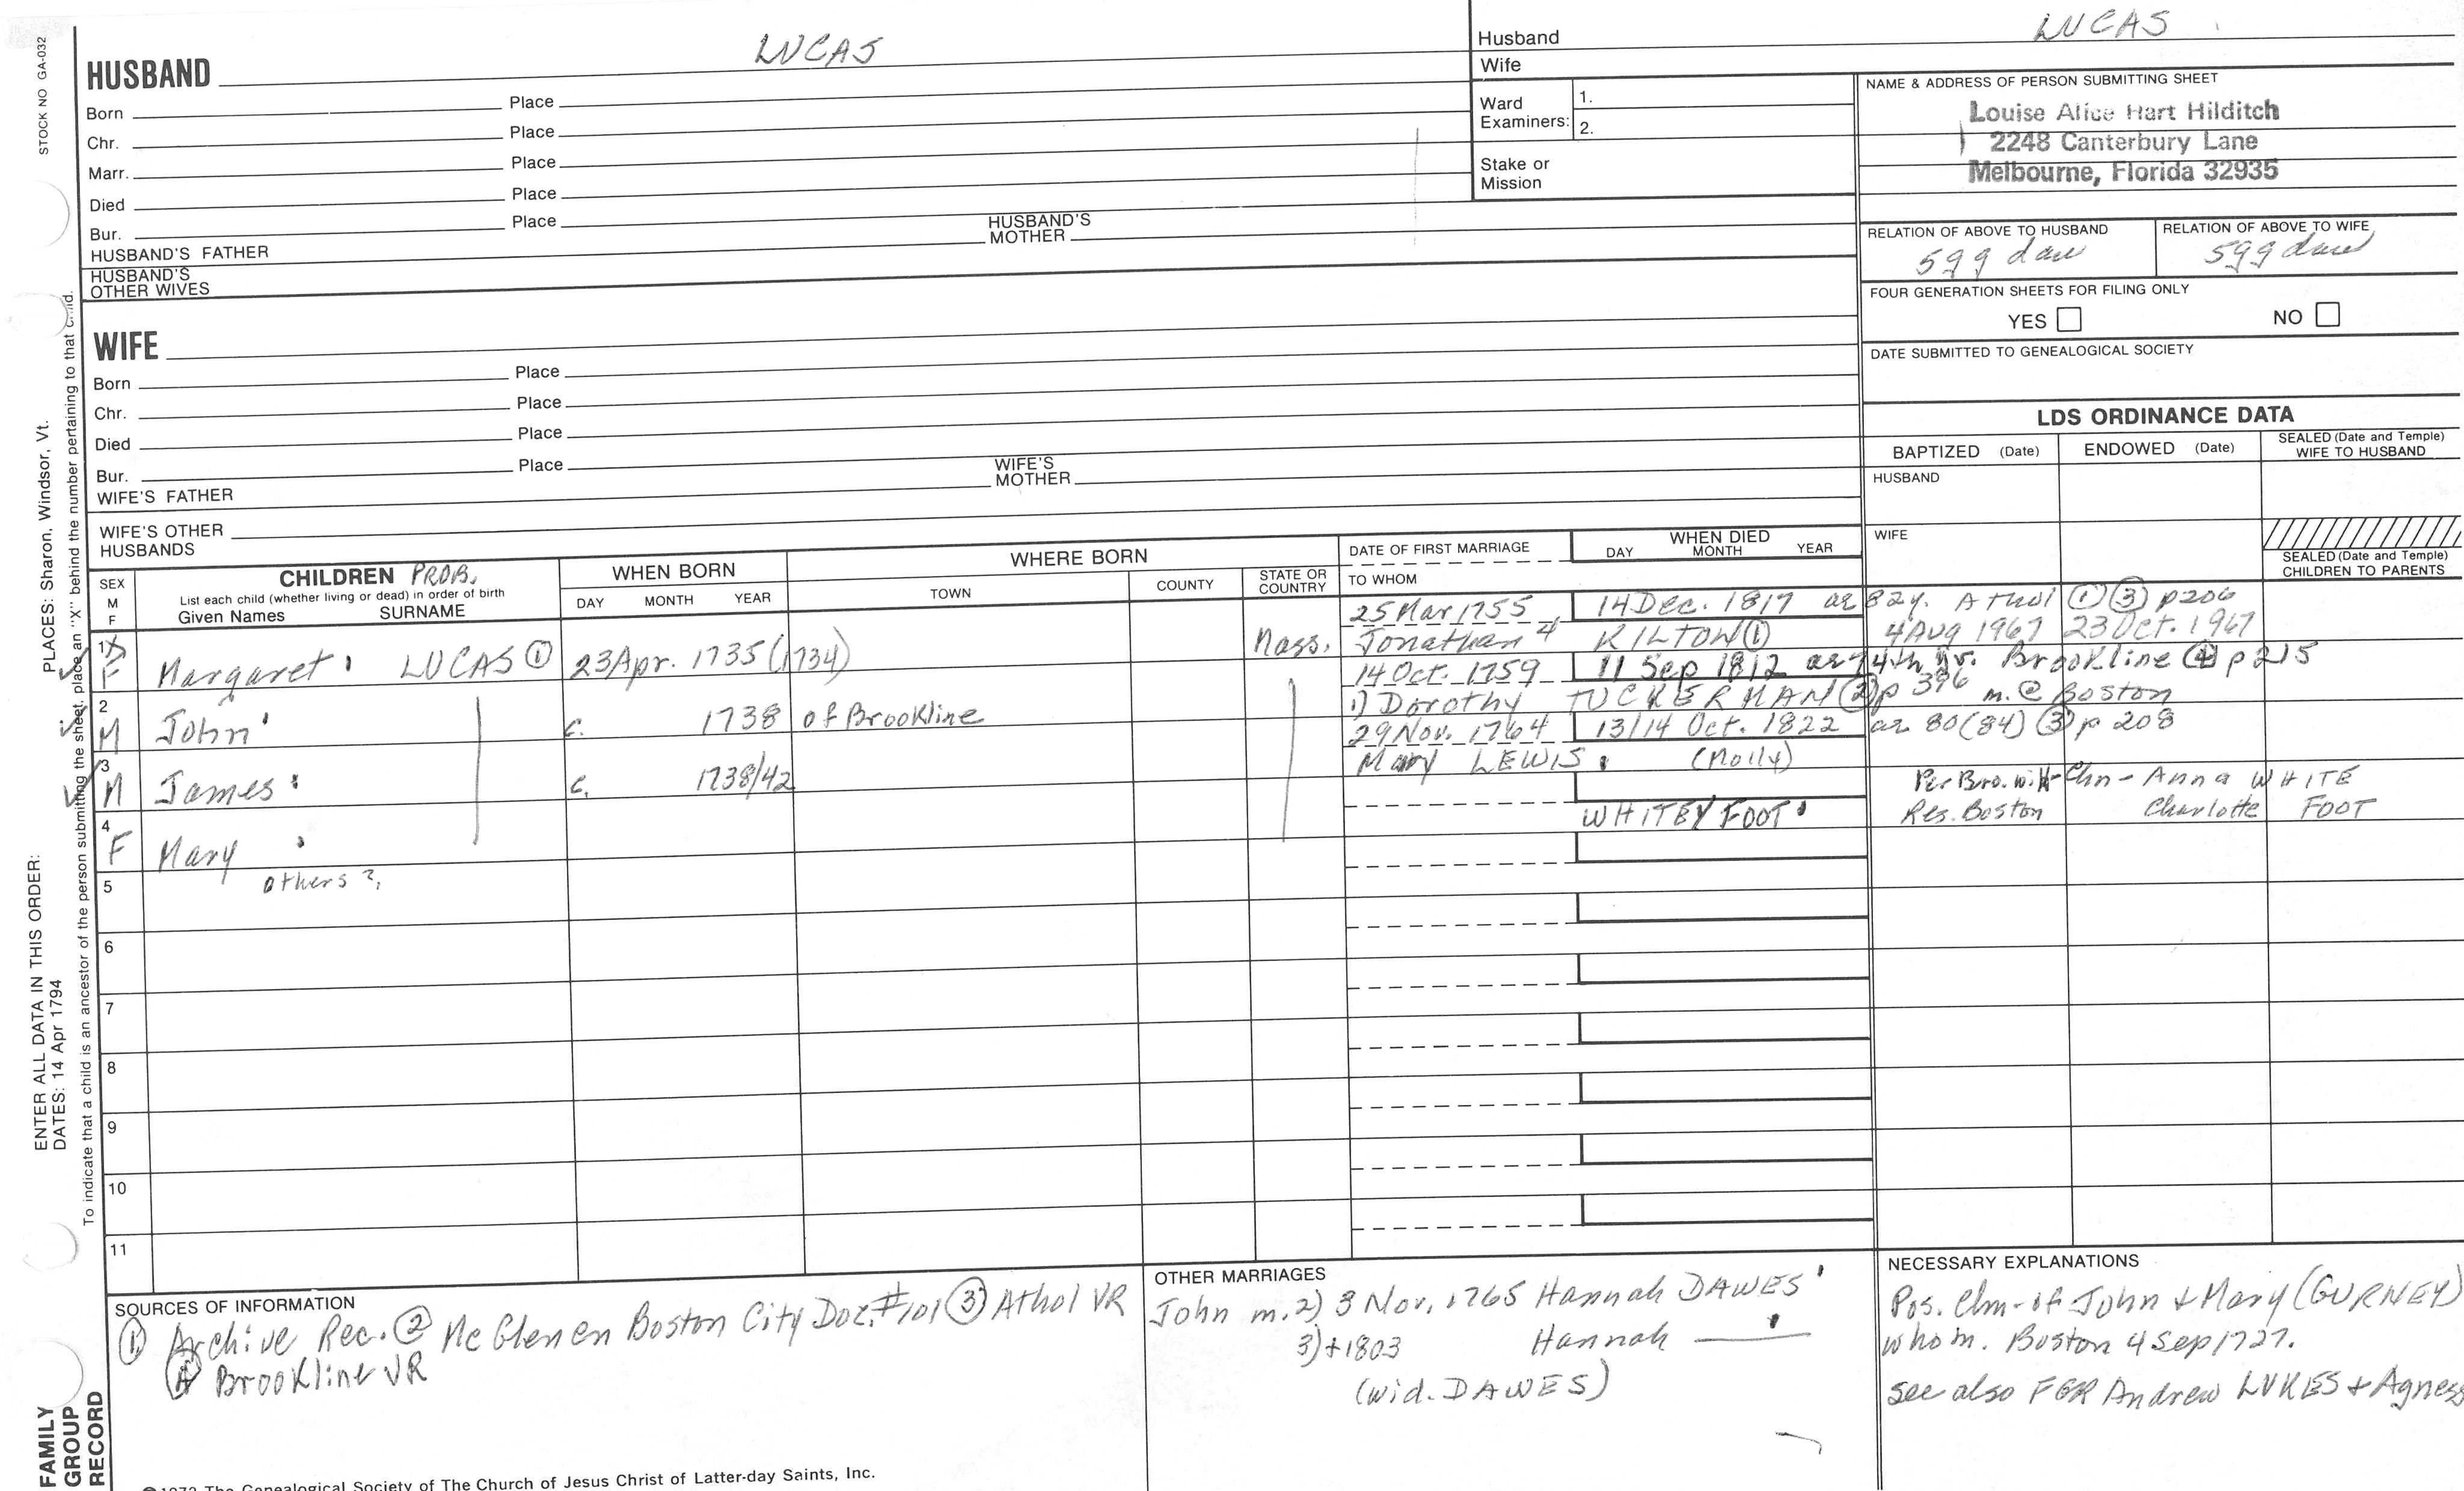 STOCK NO GA-032
HUSBAND LUCAS
Born Place
Chr. Place
Marr. Place
Died Place
Bur. Place
HUSBAND'S FATHER HUSBAND'S MOTHER
HUSBAND'S OTHER WIVES
WIFE
Born Place
Chr. Place
Died Place
Bur. Place
WIFE'S FATHER WIFE'S MOTHER
WIFE'S OTHER HUSBANDS
Husband LUCAS
Wife
Ward Examiners: 1.
2.
Stake or Mission
NAME & ADDRESS OF PERSON SUBMITTING SHEET
Louise Alice Hart Hilditch
2248 Canterbury Lane
Melbourne, Florida 32935
RELATION OF ABOVE TO HUSBAND RELATION OF ABOVE TO WIFE
5gg dau 5gg dau
FOUR GENERATION SHEETS FOR FILING ONLY
YES NO
DATE SUBMITTED TO GENEALOGICAL SOCIETY
LDS ORDINANCE DATA
BAPTIZED (Date) ENDOWED (Date) SEALED (Date and Temple) WIFE TO HUSBAND
HUSBAND
WIFE
SEALED (Date and Temple) CHILDREN TO PARENTS
SEX M F
CHILDREN PROB.
List each child (whether living or dead) in order of birth
Given Names SURNAME
WHEN BORN
DAY MONTH YEAR
WHERE BORN
TOWN COUNTY STATE OR COUNTRY
DATE OF FIRST MARRIAGE
TO WHOM
WHEN DIED
DAY MONTH YEAR
25 Mar 1755 14 Dec. 1817 ae 82y. Athol ① ③ p206
1 X F Margaret LUCAS ① 23 Apr. 1735 (1734) Mass. Jonathan 4 KILTON ① 4 Aug 1967 23 Oct. 1967
14 Oct. 1759 11 Sep 1812 ae 74th yr. Brookline ④ p 215
2 M John c. 1738 of Brookline 1) Dorothy TUCKERMAN ② p 396 m. @ Boston
29 Nov. 1764 13/14 Oct. 1822 ae 80 (84) ③ p 208
3 M James c. 1738/42 Mary LEWIS (Molly)
Per Bro. will - Chn - Anna WHITE
4 F Mary WHITEY FOOT Res. Boston Charlotte FOOT
5 others?
6
7
8
9
10
11
SOURCES OF INFORMATION
① Archive Rec. ② McGlenen Boston City Doc. #101 ③ Athol VR
④ Brookline VR
OTHER MARRIAGES
John m. 2) 3 Nov. 1765 Hannah DAWES
3) + 1803 Hannah
(wid. DAWES)
NECESSARY EXPLANATIONS
Pos. Chn - of John + Mary (GURNEY)
who m. Boston 4 Sep 1727.
see also FGR Andrew LUKES + Agness
ENTER ALL DATA IN THIS ORDER:
DATES: 14 Apr 1794 PLACES: Sharon, Windsor, Vt.
To indicate that a child is an ancestor of the person submitting the sheet, place an "X" behind the number pertaining to that child.
FAMILY
GROUP
RECORD
The Genealogical Society of The Church of Jesus Christ of Latter-day Saints, Inc.